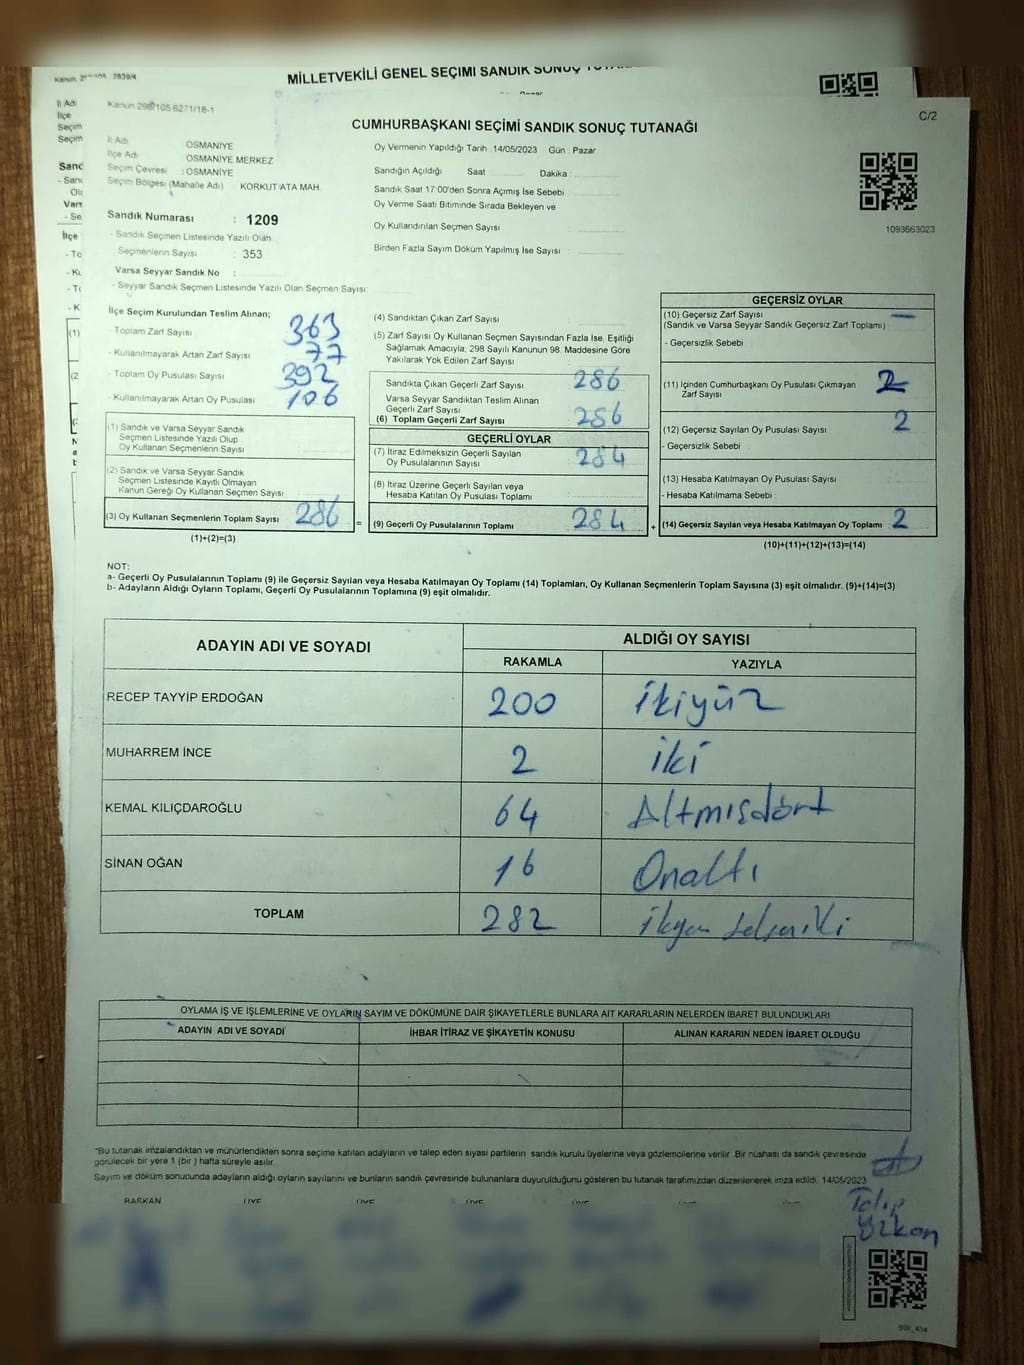 MİLLETVEKİLİ GENEL SEÇİMİ SANDIK SONUÇ
Kanun 298/105 6271/18-1
C/2
CUMHURBAŞKANI SEÇİMİ SANDIK SONUÇ TUTANAĞI
İl Adı OSMANİYE
İlçe Adı OSMANİYE MERKEZ
Seçim Çevresi : OSMANİYE
Seçim Bölgesi (Mahalle Adı) : KORKUT ATA MAH.
Sandık Numarası : 1209
- Sandık Seçmen Listesinde Yazılı Olan
Seçmenlerin Sayısı : 353
Varsa Seyyar Sandık No :
- Seyyar Sandık Seçmen Listesinde Yazılı Olan Seçmen Sayısı:
Oy Vermenin Yapıldığı Tarih 14/05/2023 Gün : Pazar
Sandığın Açıldığı Saat Dakika :
Sandık Saat 17.00'den Sonra Açılmış İse Sebebi
Oy Verme Saati Bitiminde Sırada Bekleyen ve
Oy Kullandırılan Seçmen Sayısı :
Birden Fazla Sayım Döküm Yapılmış İse Sayısı :
1093663023
İlçe Seçim Kurulundan Teslim Alınan;
- Toplam Zarf Sayısı : 363
- Kullanılmayarak Artan Zarf Sayısı : 77
- Toplam Oy Pusulası Sayısı : 392
- Kullanılmayarak Artan Oy Pusulası : 106
(1) Sandık ve Varsa Seyyar Sandık
Seçmen Listesinde Yazılı Olup
Oy Kullanan Seçmenlerin Sayısı
(2) Sandık ve Varsa Seyyar Sandık
Seçmen Listesinde Kayıtlı Olmayan
Kanun Gereği Oy Kullanan Seçmen Sayısı
(3) Oy Kullanan Seçmenlerin Toplam Sayısı 286
(1)+(2)=(3)
=
(4) Sandıktan Çıkan Zarf Sayısı
(5) Zarf Sayısı Oy Kullanan Seçmen Sayısından Fazla İse, Eşitliği
Sağlamak Amacıyla, 298 Sayılı Kanunun 98. Maddesine Göre
Yakılarak Yok Edilen Zarf Sayısı
Sandıkta Çıkan Geçerli Zarf Sayısı 286
Varsa Seyyar Sandıktan Teslim Alınan
Geçerli Zarf Sayısı
(6) Toplam Geçerli Zarf Sayısı 286
GEÇERLİ OYLAR
(7) İtiraz Edilmeksizin Geçerli Sayılan
Oy Pusulalarının Sayısı 284
(8) İtiraz Üzerine Geçerli Sayılan veya
Hesaba Katılan Oy Pusulası Toplamı
(9) Geçerli Oy Pusulalarının Toplamı 284
+
GEÇERSİZ OYLAR
(10) Geçersiz Zarf Sayısı —
(Sandık ve Varsa Seyyar Sandık Geçersiz Zarf Toplamı)
- Geçersizlik Sebebi
(11) İçinden Cumhurbaşkanı Oy Pusulası Çıkmayan
Zarf Sayısı 2
(12) Geçersiz Sayılan Oy Pusulası Sayısı 2
- Geçersizlik Sebebi
(13) Hesaba Katılmayan Oy Pusulası Sayısı
- Hesaba Katılmama Sebebi
(14) Geçersiz Sayılan veya Hesaba Katılmayan Oy Toplamı 2
(10)+(11)+(12)+(13)=(14)
NOT:
a- Geçerli Oy Pusulalarının Toplamı (9) ile Geçersiz Sayılan veya Hesaba Katılmayan Oy Toplamı (14) Toplamları, Oy Kullanan Seçmenlerin Toplam Sayısına (3) eşit olmalıdır. (9)+(14)=(3)
b- Adayların Aldığı Oyların Toplamı, Geçerli Oy Pusulalarının Toplamına (9) eşit olmalıdır.
ADAYIN ADI VE SOYADI ALDIĞI OY SAYISI
RAKAMLA YAZIYLA
RECEP TAYYİP ERDOĞAN 200 ikiyüz
MUHARREM İNCE 2 iki
KEMAL KILIÇDAROĞLU 64 Altmışdört
SİNAN OĞAN 16 Onaltı
TOPLAM 282
OYLAMA İŞ VE İŞLEMLERİNE VE OYLARIN SAYIM VE DÖKÜMÜNE DAİR ŞİKAYETLERLE BUNLARA AİT KARARLARIN NELERDEN İBARET BULUNDUKLARI
ADAYIN ADI VE SOYADI İHBAR İTİRAZ VE ŞİKAYETİN KONUSU ALINAN KARARIN NEDEN İBARET OLDUĞU
"Bu tutanak imzalandıktan ve mühürlendikten sonra seçime katılan adayların ve talep eden siyasi partilerin sandık kurulu üyelerine veya gözlemcilerine verilir. Bir nüshası da sandık çevresinde
görülecek bir yere 1 (bir ) hafta süreyle asılır.
Sayım ve döküm sonucunda adayların aldığı oyların sayılarını ve bunların sandık çevresinde bulunanlara duyurulduğunu gösteren bu tutanak tarafımızdan düzenlenerek imza edildi. 14/05/2023
BAŞKAN ÜYE ÜYE ÜYE ÜYE
Talip